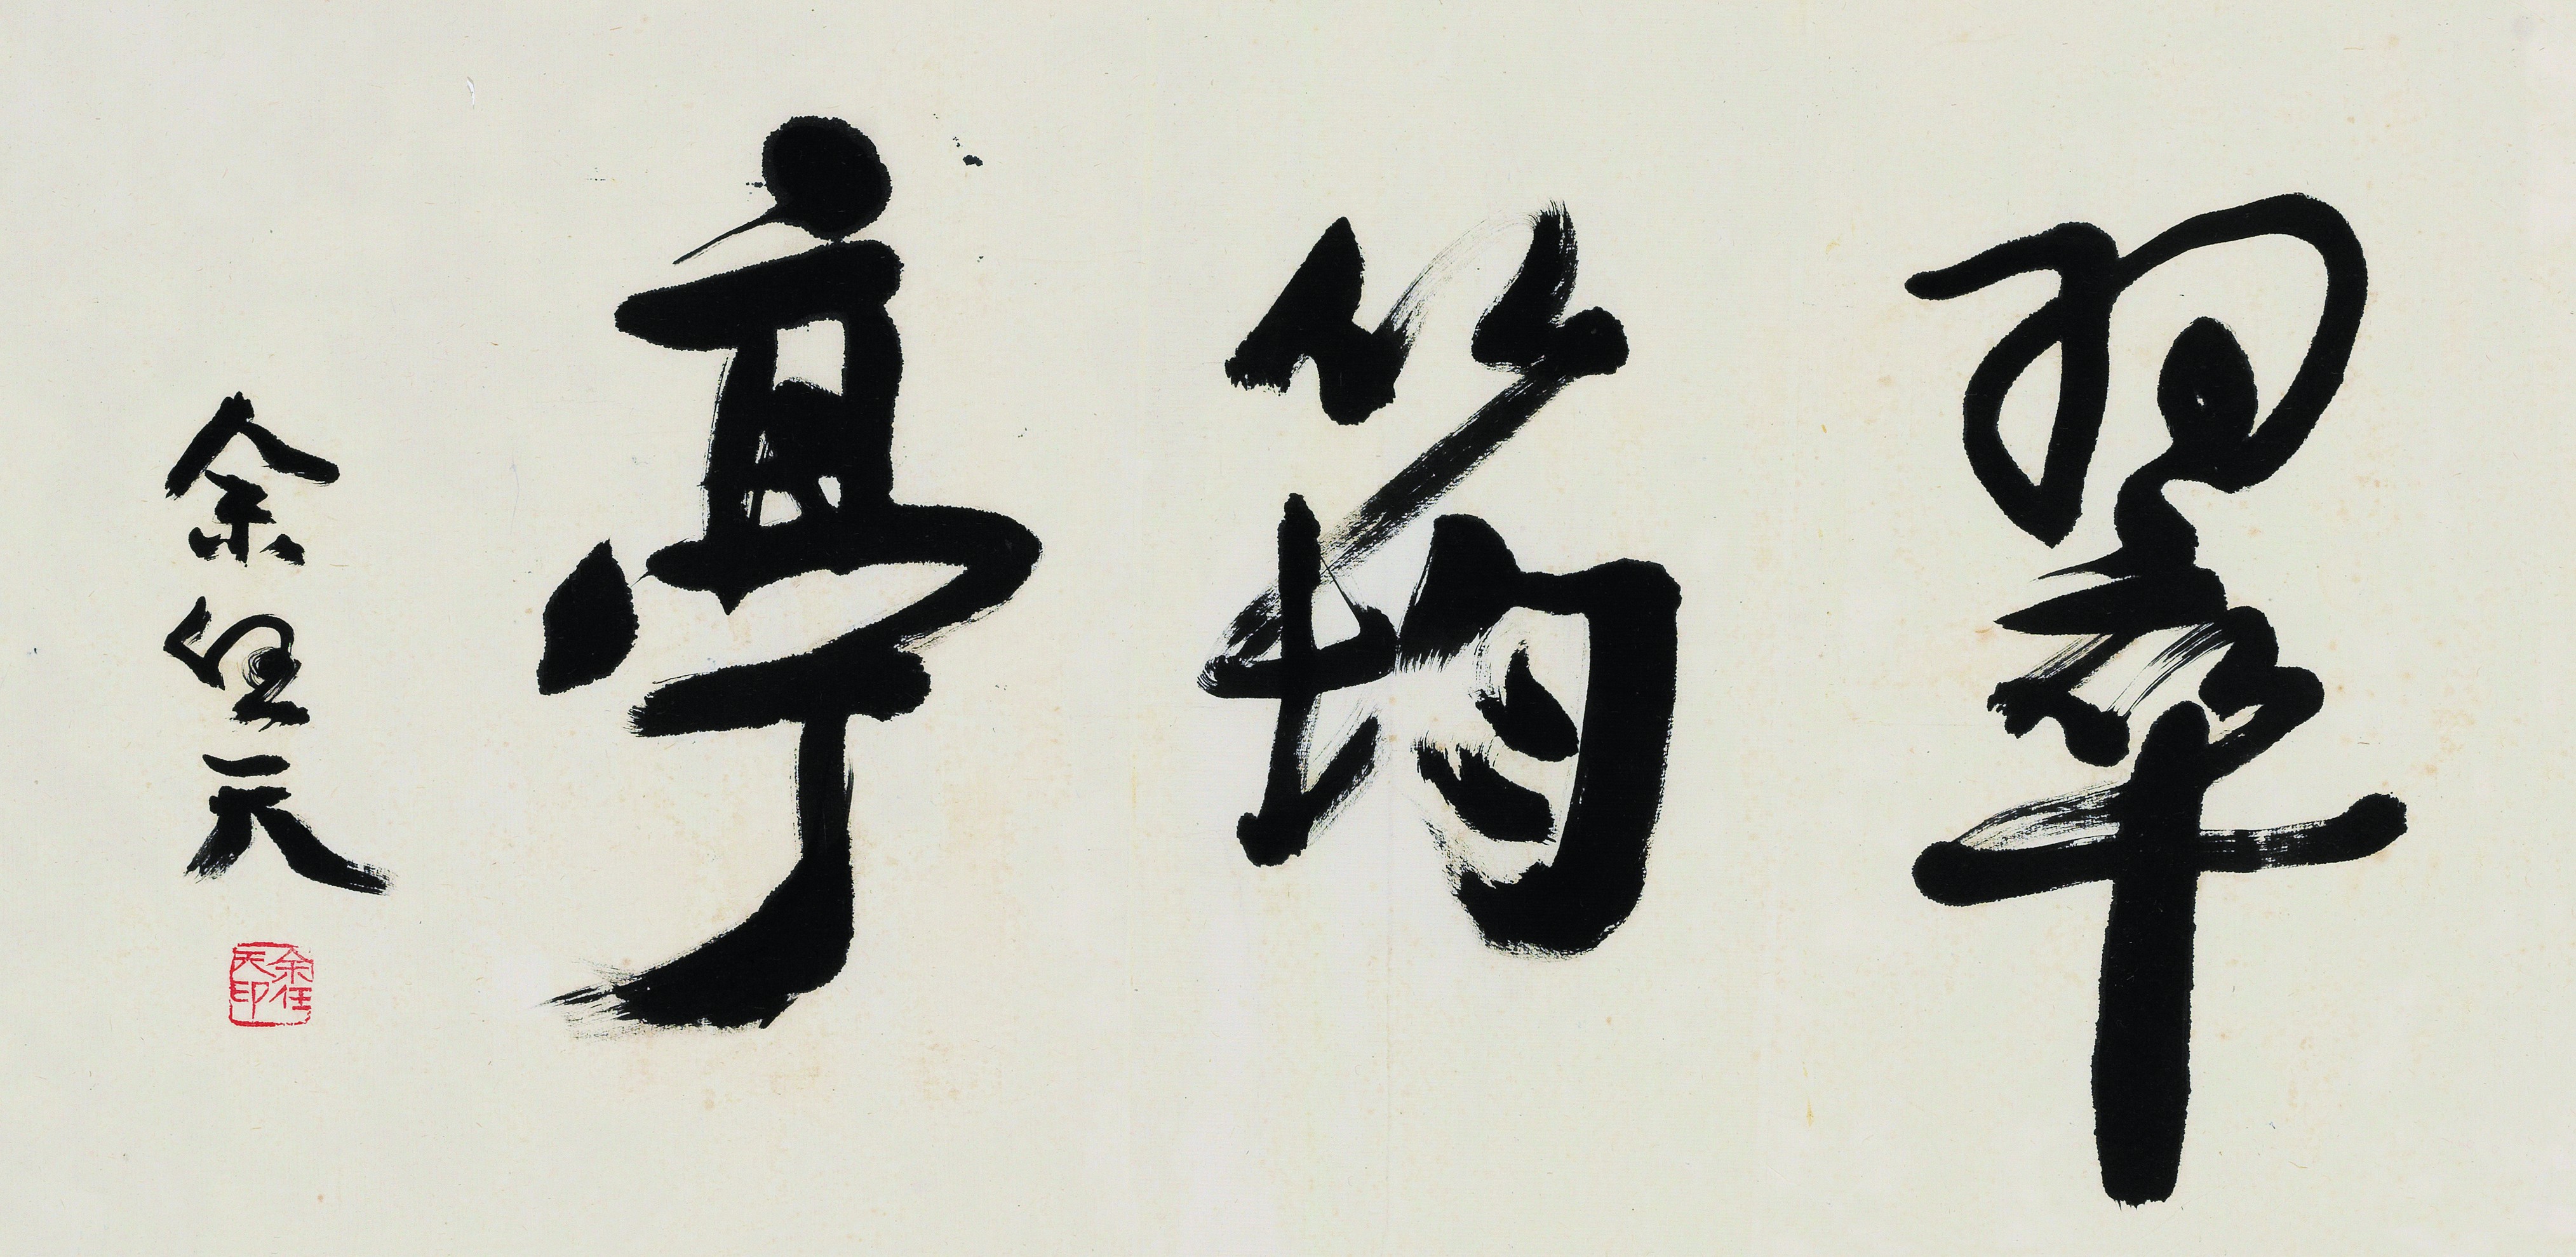 翠筠亭
余任天
余任天印